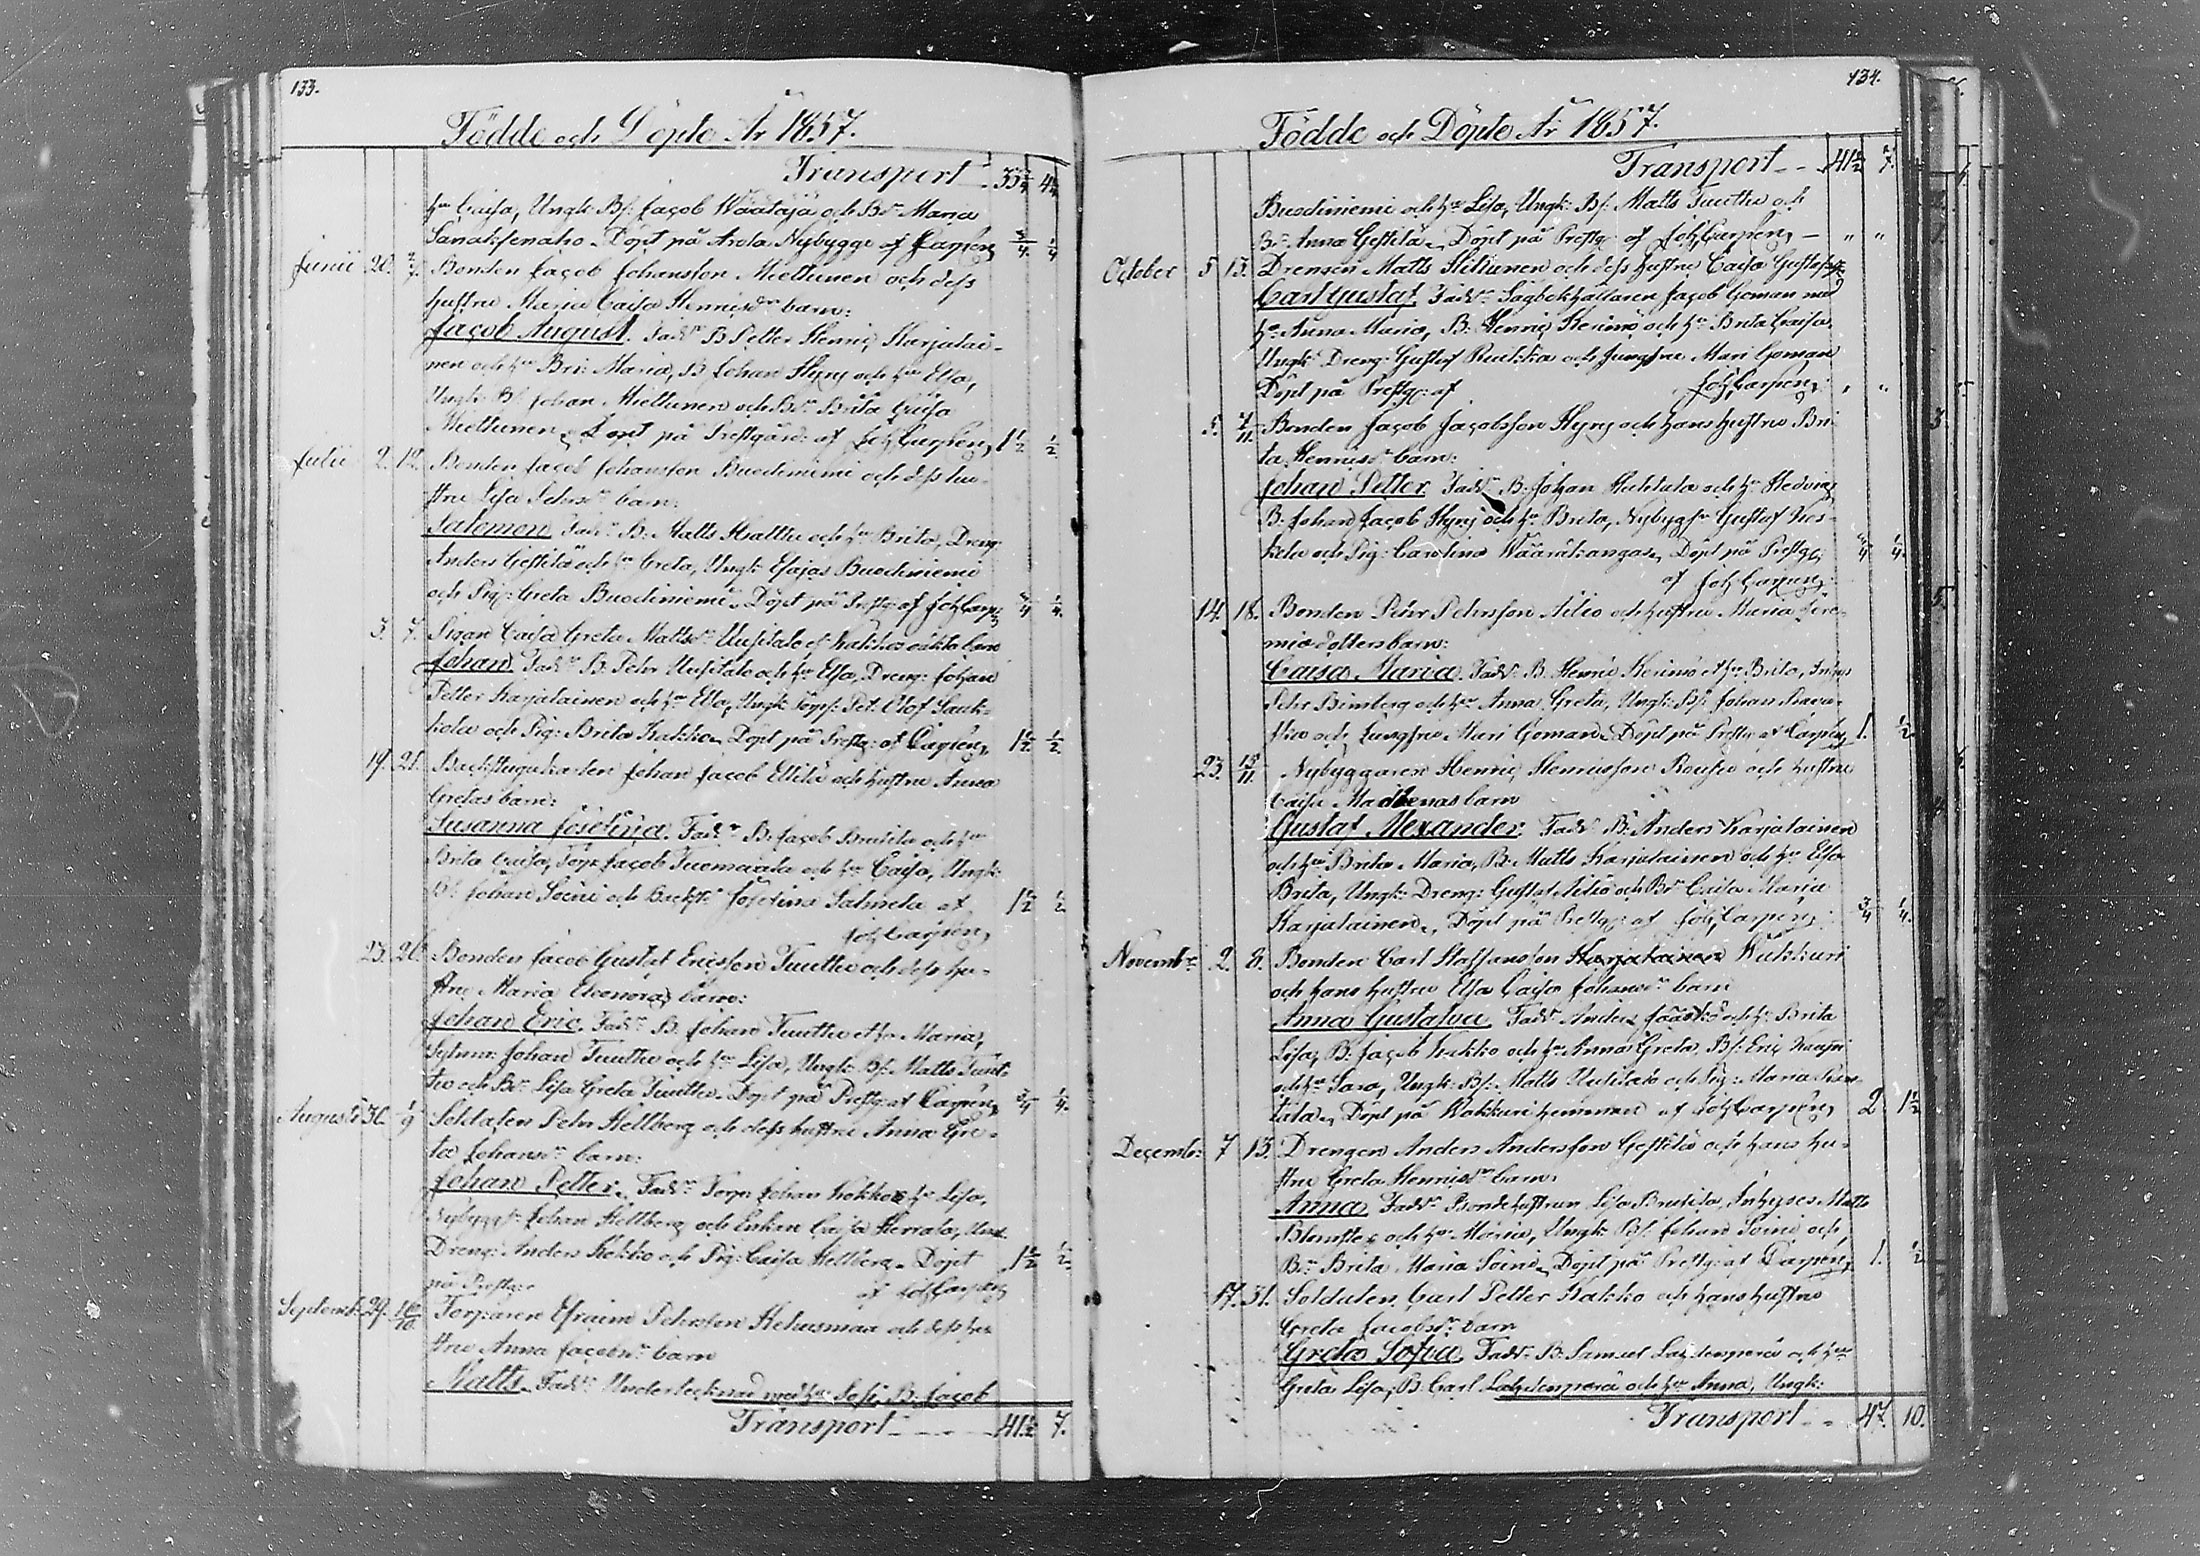 133.
Födde och Döpte År 1857.
Transport
hu Caisa, Ungk: Bs: Jacob Wäätäjä och Bdr Maria
Sänaksenaho. Döpt på Arola Nybygge af Carpén, 3/4 1/4
Junii 20. 2/7. Bonden Jacob Johansson Miettunen och dess
hustru Maria Caisa Henricsdrs barn:
Jacob August. Fadr B Petter Henric Karjalai-
nen och hu Bri: Maria, B Johan Hyry och hu Elsa,
Ungk: Bs Johan Miettunen och Bdr Brita Caisa
Miettunen, Döpt på Prestgård: af Joh Carpén, 1 1/2 1/2
Julii 2. 12. Bonden Jacob Johansson Buodiniemi och dess hu-
stru Lisa Pehrsdrs barn:
Salomon, Fadr. B. Matts Kralttu och hu Brita, Dreng
Anders Gestilä och hu Greta, Ungk: Esajas Buodiniemi
och Pig: Greta Buodiniemi. Döpt på Prestg: af Joh Carp: 3/4 1/4
3. 7. Pigan Caisa Greta Mattsdr Uusitalo el Kakkos oäkta barn
Johan. Fadr B. Pehr Uusitalo och hu Elsa, Dreng: Johan
Petter Karjalainen och hu Eva, Ungk: Torps: Pet: Olof Sauk-
kola och Pig: Brita Kakko. Döpt på Prestg: af Carpén, 1 1/2 1/2
19. 21. Backstugukarlen Johan Jacob Ellilä och hustru Anna
Gretas barn:
Susanna Josefina. Fadr B. Jacob Brusila och hu
Brita Caisa, Torp: Jacob Tuomaala och hu Caisa, Ungk:
Bs: Johan Soini och Backst: Josefina Salmela af 1 1/2 1/2
Joh Carpén,
23. 26. Bonden Jacob Gustaf Ericsson Tuuttu och dess hu-
stru Maria Eleonoras barn:
Johan Eric. Fadr B. Johan Tuuttu et hu Maria,
Sytnin: Johan Tuuttu och hu Lisa, Ungk: Bs: Matts Tuut-
tu och Bdr Lisa Greta Tuuttu. Döpt på Prestg: af Carpén, 3/4 1/4.
Augusti 30. 1/9 Soldaten Pehr Hellberg och dess hustru Anna Gre-
ta Johansdrs barn:
Johan Petter. Fadr Torp: Johan Kokko o hu Lisa,
Nybygg: Johan Hellberg och Enkan Caisa Herrala, Ungk.
Dreng: Anders Kokko och Pig: Caisa Hellberg. Döpt 1 1/2 1/2
på Prestg: af Joh Carpén
Septemb: 29. 10/10. Torparen Efraim Pehrsson Kehusmaa och dess hu-
stru Anna Jacobsdrs barn
Matts. Fadr: Undertecknad med hu Sofi, B. Jacob
Transport 41 1/2 7.
134.
Födde och Döpte År 1857.
Transport 41 1/2 7.
Buodiniemi och hu Lisa, Ungk: Bs: Matts Tuuttu och
Bdr Anna Gestilä, Döpt på Prestg: af Joh Carpén, — " "
October 5 13. Drengen Matts Kiltunen och dess hustru Caisa Gustafsdrs
Carl Gustaf. Fadr Sågbokhållaren Jacob Goman med
hu Anna Maria, B. Henric Kerimö och hu Brita Caisa
Ungk: Dreng: Gustaf Ruikka och Jungfru Mari Goman
Döpt på Prestg: af Joh Carpén, " "
5. 7/11 Bonden Jacob Jacobsson Hyry och hans hustru Bri-
ta Henricsdrs barn:
Johan Petter. Fadr: B. Johan Huhtala och hu Hedvig
B. Johan Jacob Hyry och hu Brita, Nybyggr Gustaf Kos-
kela och Pig: Carolina Wääräkangas, Döpt på Prestg: 3/4 1/4
af Joh Carpén,
14. 18. Bonden Pehr Pehrsson Ailio och hustru Maria Jere-
miæ dotters barn:
Caisa Maria. Fadr: B. Henric Kerimö et hu Brita, Inhys
Pehr Brinberg och hu Anna Greta, Ungk: Bs: Johan
och Jungfru Mari Goman. Döpt på Prestg: af Carpén, 1. 1/2
23. 15/11. Nybyggaren Henric Henricsson Rousu och hustru
Caisa Madlenas barn
Gustaf Alexander. Fadr: B. Anders Karjalainen
och hu Brita Maria, B. Matts Karjalainen och hu Elsa
Brita, Ungk: Dreng: Gustaf Ailio och Bdr Caisa Maria
Karjalainen, Döpt på Prestg: af Joh Carpén, 3/4 1/4.
Novembr: 2. 8. Bonden Carl Staffansson Karjalainen Kukkuri
och hans hustru Elsa Caisa Johansdrs barn
Anna Gustafva. Fadr Anders Jääskö och hu Brita
Lisa, B. Jacob Kakko och hu Anna Greta, Bs: Eric
och hu Sara, Ungk: Bs: Matts Uusitalo och Pig: Maria
Döpt på Kukkuri hemman af Joh Carpén, 2. 1 1/2
Decemb: 7 13. Drengen Anders Andersson Gestilä och hans hu-
stru Greta Henricsdrs barn
Anna. Fadr: Bondehustrun Lisa Brusila, Inhyses Matts
Blomster och hu Maria, Ungk: Bs: Johan Soini och
Bdr Brita Maria Soini. Döpt på Prestg: af Carpén, 1. 1/2
17. 31. Soldaten Carl Petter Kakko och hans hustru
Greta Jacobsdrs barn
Greta Sofva. Fadr: B. Samuel Lahdenperä och hu
Greta Lisa, B. Carl Lahdenperä och hu Anna, Ungk:
Transport 47. 10.